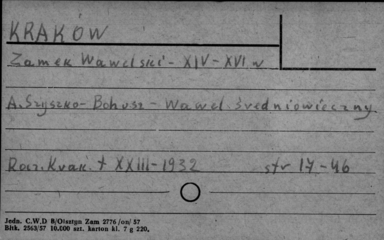 KRAKÓW
Zamek Wawelski - XIV - XVI w
A. Szyszko-Bohusz - Wawel średniowieczny.
Rocz. Krak. t XXIII - 1932 str 17-46
Jedn. C.W.D B/Olsztyn Zam 2776 /on/ 57
Bltk. 2563/57 10.000 szt. karton kl. 7 g 220.